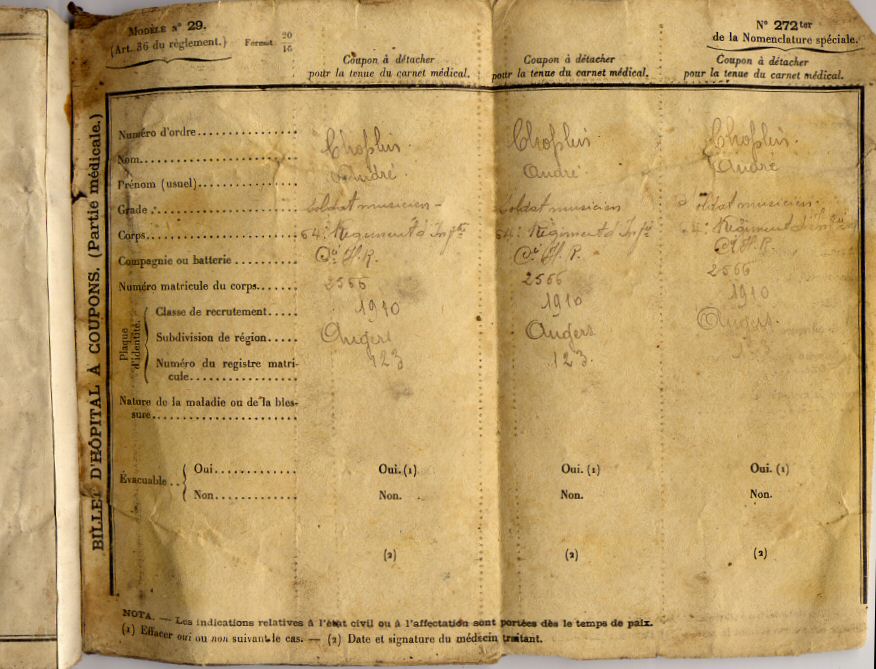 Modèle n° 29.
(Art. 36 du règlement.)
Format 20/16
N° 272ter
de la Nomenclature spéciale.
Coupon à détacher
pour la tenue du carnet médical.
Coupon à détacher
pour la tenue du carnet médical.
Coupon à détacher
pour la tenue du carnet médical.
BILLET D'HÔPITAL À COUPONS. (Partie médicale.)
Numéro d'ordre
Nom Choplin Choplin Choplin
Prénom (usuel) André André André
Grade Soldat musicien Soldat musicien Soldat musicien
Corps 64e Régiment d'Infie 64e Régiment d'Infie 64e Régiment d'Infie
Compagnie ou batterie Cie H.R. Cie H.R. Cie H.R.
Numéro matricule du corps 2566 2566 2566
Plaque d'identité.
Classe de recrutement 1910 1910 1910
Subdivision de région Angers Angers Angers
Numéro du registre matri-
cule 123 123 123
Nature de la maladie ou de la bles-
sure
Évacuable
Oui Oui. (1) Oui. (1) Oui. (1)
Non Non. Non. Non.
(2) (2) (2)
NOTA. — Les indications relatives à l'état civil ou à l'affectation sont portées dès le temps de paix.
(1) Effacer oui ou non suivant le cas. — (2) Date et signature du médecin traitant.